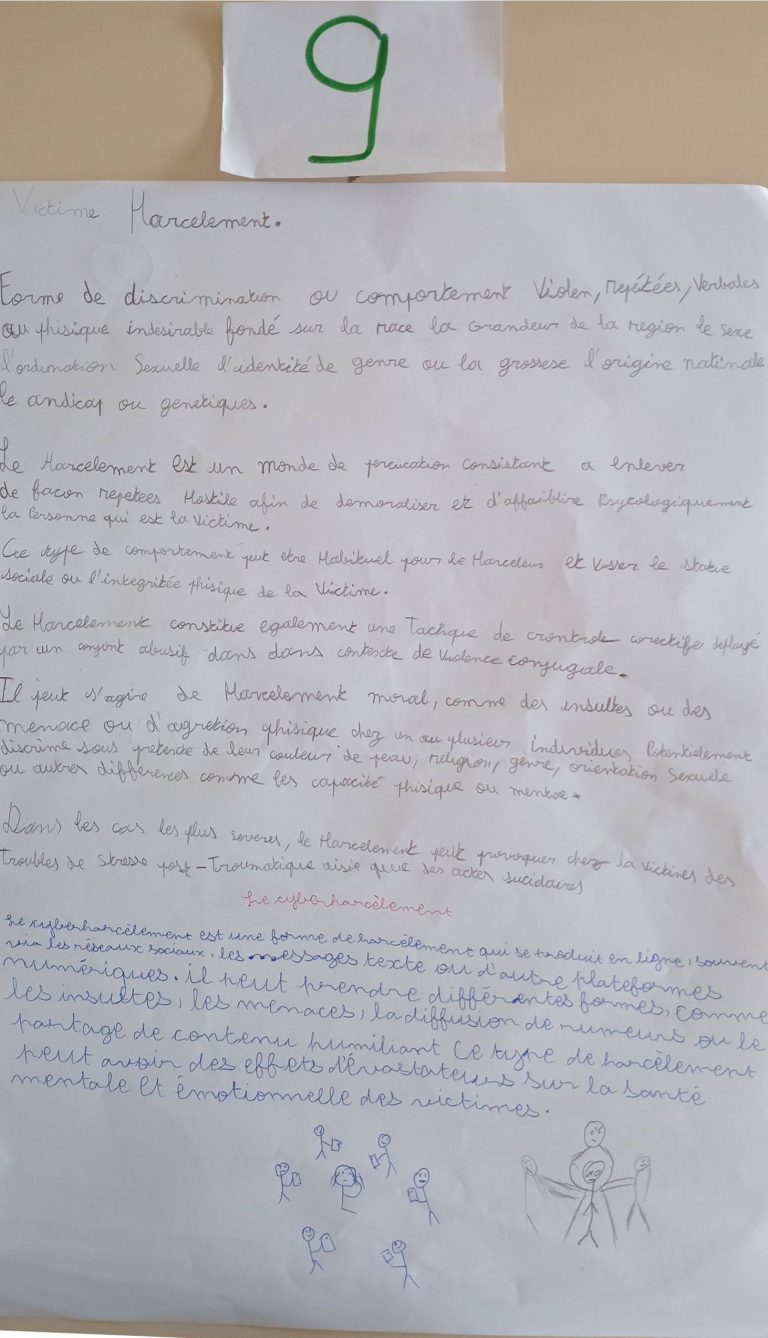 9
Victime Harcelement.
Forme de discrimination ou comportement Violen, repétées, Verbales
ou phisique indesirable fondé sur la race la Grandeur de la region le sexe
l'ordination Sexuelle l'identité de genre ou la grossese l'origine nationale
le andicap ou genetiques.
Le Harcelement est un monde de percucation consistant a enlever
de facon repetees Hostile afin de demoraliser et d'affaiblire Psycologiquement
la Personne qui est la victime.
Ce type de comportement peut etre Habituel pour le Harceleur et visser le statue
sociale ou l'integritée phisique de la Victime.
Le Harcelement constitue egalement une Tachique de crontrole
par un conjont abusif dans dans contexte de violence conjugiale.
Il peut s'agire de Harcelement moral, comme des insultes ou des
menace ou d'agretion phisique chez un ou plusieur individues Potentielement
discrime sous pretexte de leur couleur de peau, religion, genre, orientation Sexuele
ou autres différences comme les capacité phisique ou mentae.
Dans les cas les plus severes, le Harcelement peut provoquer chez la victimes des
Troubles de Stresse post-Troumatique aisie que des actes sucidaires
Le cyberharcèlement
Le cyberharcèlement est une forme de harcèlement qui se produit en ligne, souvent
via les réseaux sociaux, les messages texte ou d'autre plateformes
numériques. il peut prendre différentes formes, comme
les insultes, les menaces, la diffusion de rumeurs ou le
partage de contenu humiliant Ce type de harcèlement
peut avoir des effets dévastateurs sur la santé
mentale et émotionnelle des victimes.